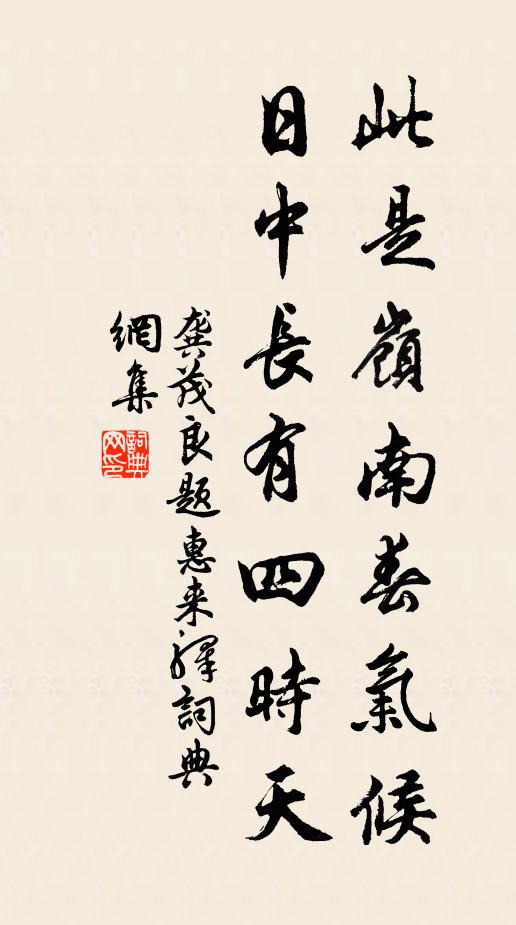 此是嶺南春氣候
日中長有四時天
龚茂良題惠来驛詞典
網集
詞典
网印